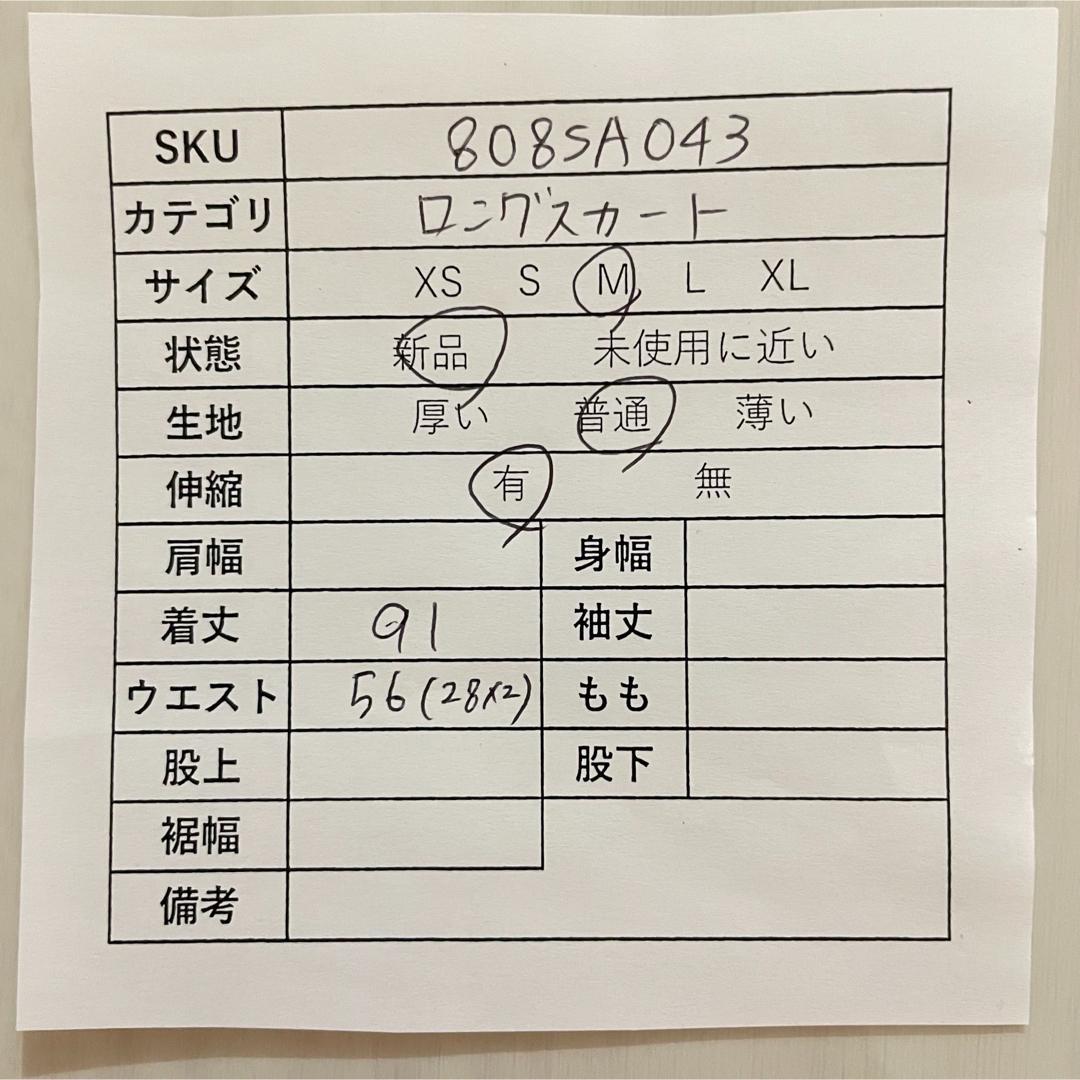 SKU 808SA043
カテゴリ ロングスカート
サイズ XS S M L XL
状態 新品 未使用に近い
生地 厚い 普通 薄い
伸縮 有 無
肩幅 身幅
着丈 91 袖丈
ウエスト 56(28×2) もも
股上 股下
裾幅
備考